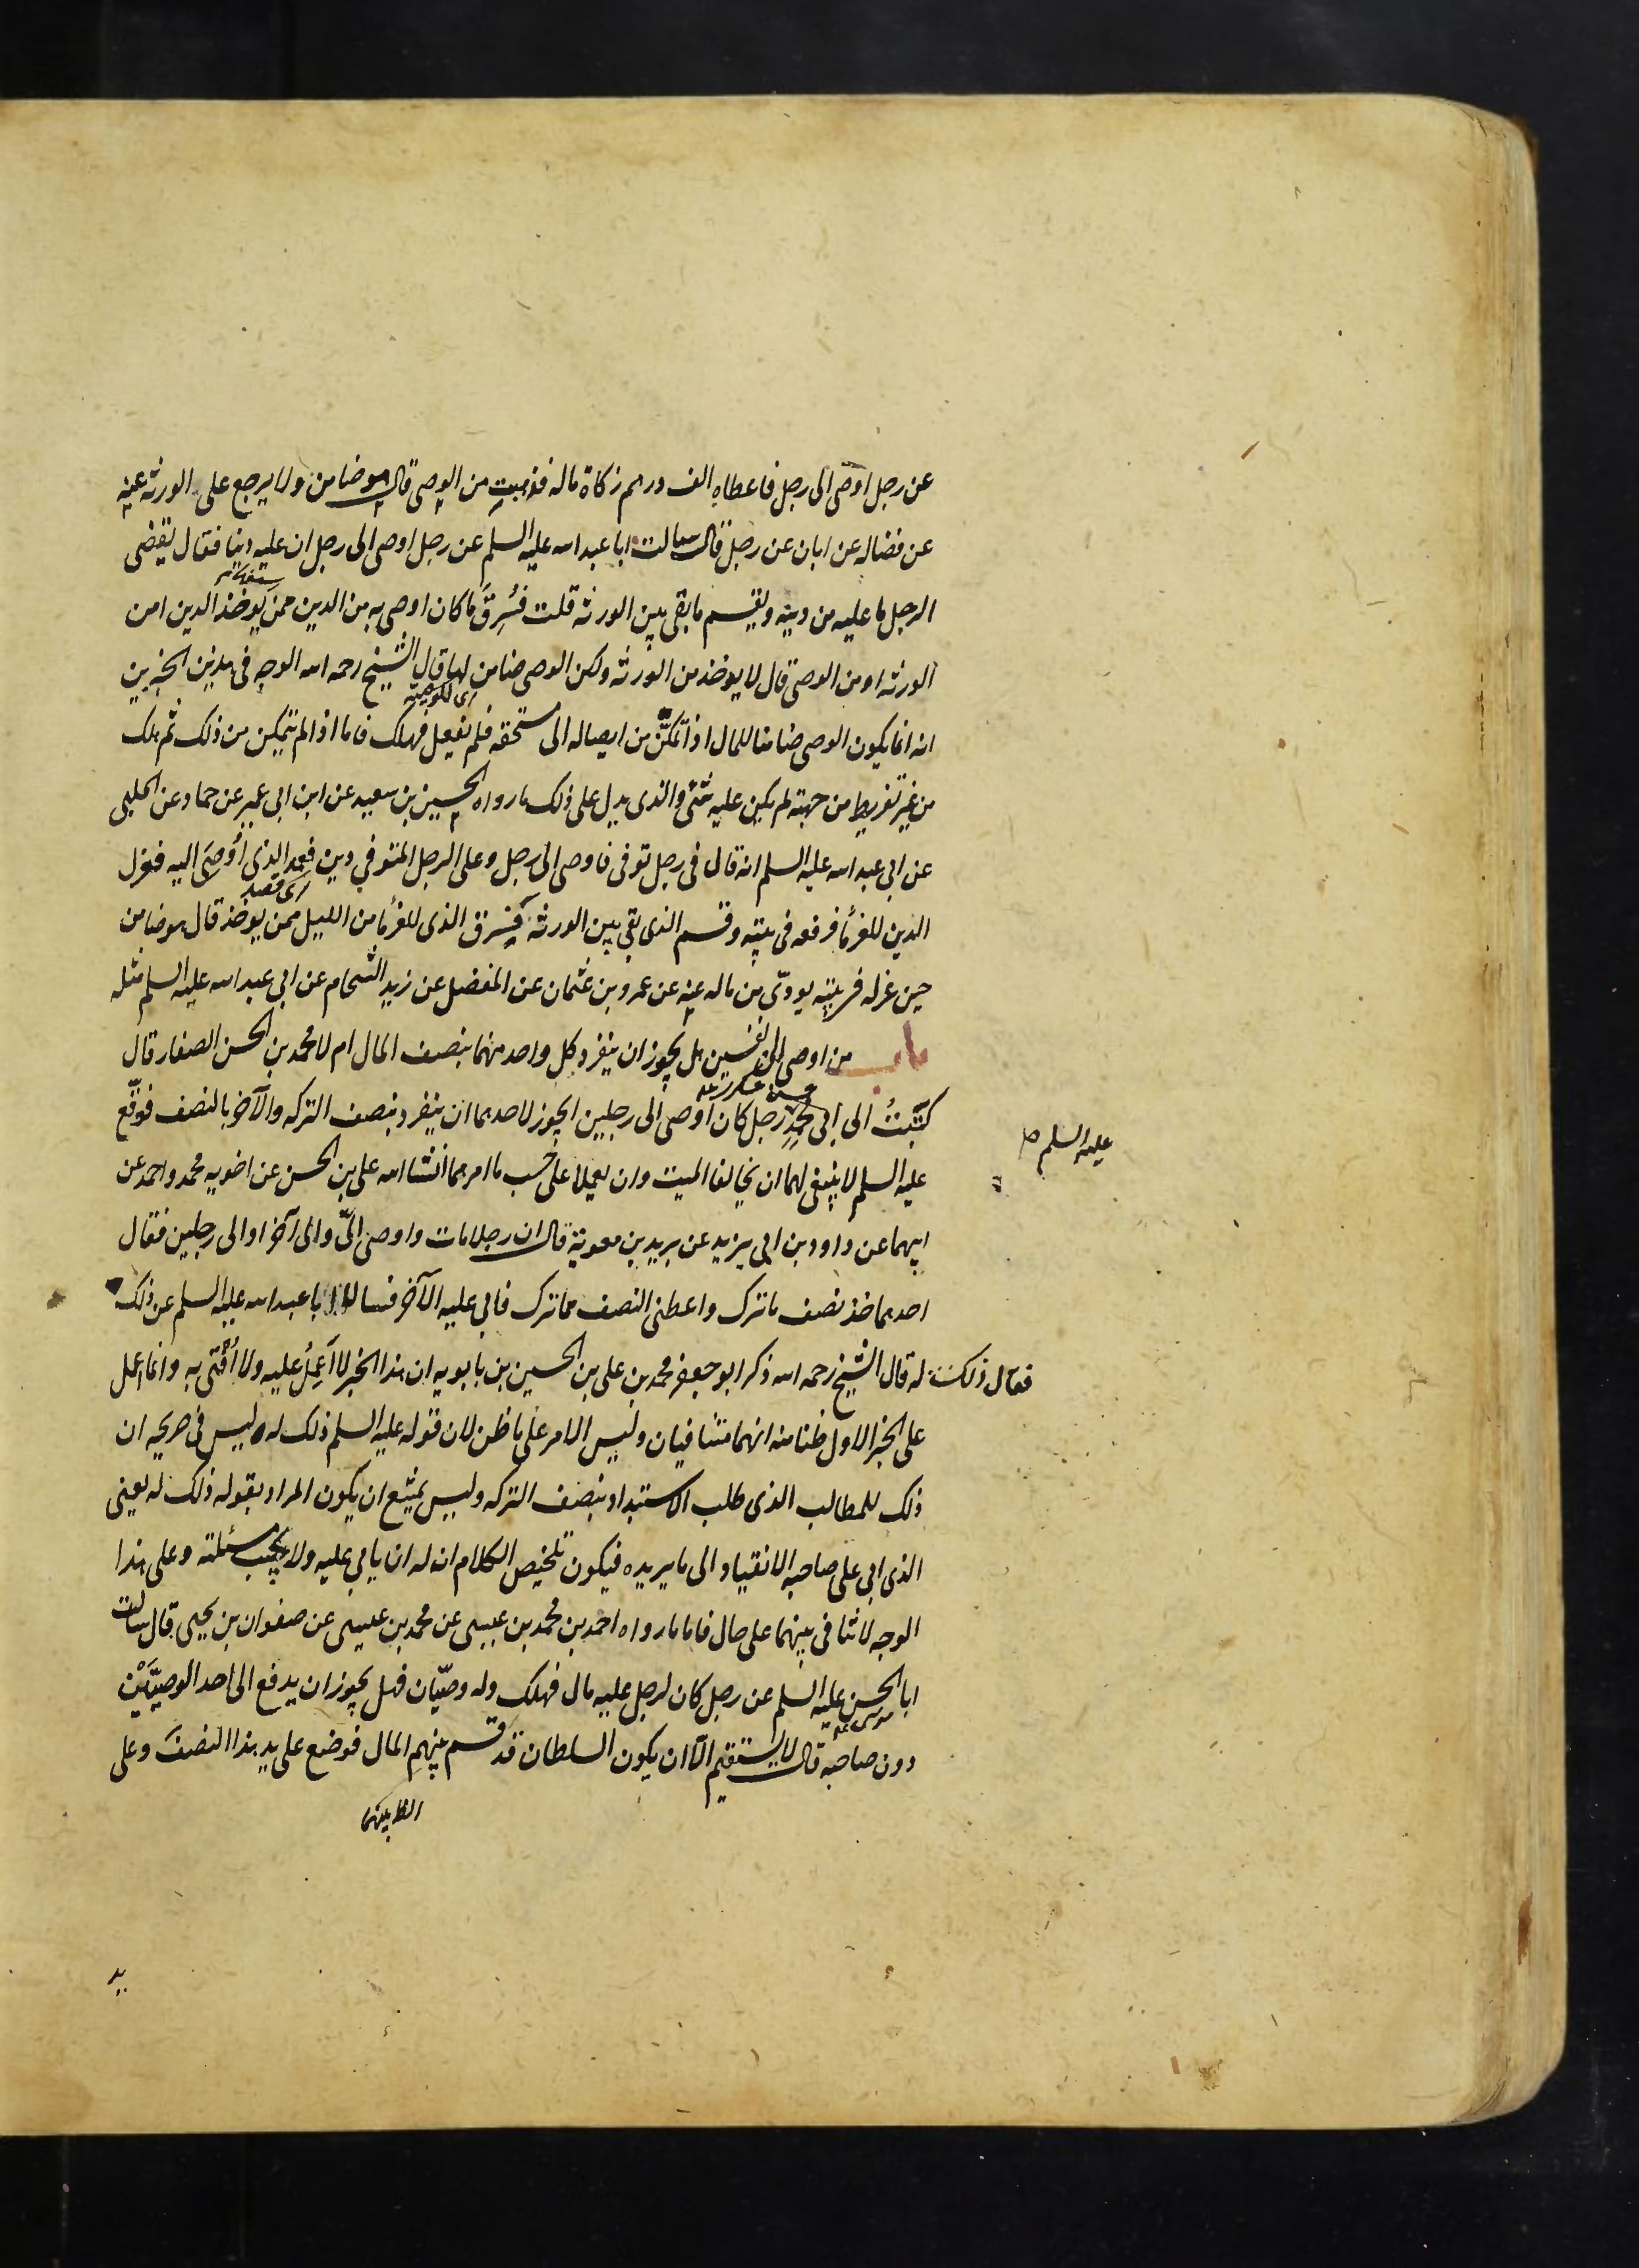 عن رجل اوصى الى رجل فاعطاه الف درهم زكاة ماله فذهبت من الوصى قال هو ضامن ولا يرجع على الورثه عنه
عن فضاله عن ابان عن رجل قال سالت ابا عبد الله عليه السلم عن رجل اوصى الى رجل ان عليه دينا فقال يقضى
الرجل ما عليه من دينه ويقسم ما بقى بين الورثه قلت فسُرِقَ ما كان اوصى به من الدين ممن يوخذ الدين امن
الورثه او من الوصى قال لا يوخذ من الورثه ولكن الوصى ضامن لها قال الشيخ رحمه الله الوجه فى هذين الخبرين
اى للوصية
انه انما يكون الوصى ضامنا للمال اذا تمكّن من ايصاله الى مستحقه فلم يفعل فهلك فاما اذا لم يتمكن من ذلك ثم هلك
من غير تفريط من جهته لم يكن عليه شئ والذى يدل على ذلك ما رواه الحسين بن سعيد عن ابن ابى عمير عن حماد عن الحلبى
عن ابى عبد الله عليه السلم انه قال فى رجل توفى فاوصى الى رجل وعلى الرجل المتوفي دين فعمد الذى أوصَى اليه فعزل
اى قصد
الدين للغرما فرفعه فى بيته وقسم الذى بقى بين الورثه فيسرق الذى للغرما من الليل ممن يوخذ قال هو ضامن
حين عزله فى بيته يودّى من ماله عنه عن عمرو بن عثمان عن المفضل عن زيد الشحام عن ابى عبد الله عليه السلم مثله
باب من اوصى الى نفسين هل يجوز ان ينفرد كل واحد منهما بنصف المال ام لا محمد بن الحسن الصفار قال
كتبتُ الى ابى محمدٍ رجل كان اوصى الى رجلين ايجوز لاحدهما ان ينفرد بنصف التركه والآخر بالنصف فوقّع
عليه السلم صل
عليه السلم لا ينبغى لهما ان يخالفا الميت وان يعملا على حَسب ما امرهما انشا الله على بن الحسن عن اخويه محمد واحمد عن
ابيهما عن داود بن ابى يزيد عن بريد بن معوية قال ان رجلا مات واوصى الىّ والى آخر او الى رجلين فقال
احدهما خذ نصف ما ترك واعطنى النصف مما ترك فابى عليه الآخر فسالوا ابا عبد الله عليه السلم عن ذلك
فقال ذلك له قال الشيخ رحمه الله ذكر ابو جعفر محمد بن على بن الحسين بن بابويه ان هذا الخبر لا أعملُ عليه ولا أُفتى به وانما اعمل
على الخبر الاول ظنا منه انهما متنافيان وليس الامر على ما ظن لان قوله عليه السلم ذلك له ليس فى صريحه ان
ذلك للمطالب الذى طلب الاستبداد بنصف التركه وليس يمتنع ان يكون المراد بقوله ذلك له يعنى
الذى ابى على صاحبه الانقياد الى ما يريده فيكون تلخيص الكلام ان له ان يابى عليه ولا يجيب مسئلته وعلى هذا
الوجه لا تنافى بينهما على حال فاما ما رواه احمد بن محمد بن عيسى عن محمد بن عيسى عن صفوان بن يحيى قال سالت
ابا الحسن عليه السلم عن رجل كان لرجل عليه مال فهلك وله وصيّان فهل يجوز ان يدفع الى احد الوصيَّيْن
دون صاحبه قال لا يستقيم الّا ان يكون السلطان قد قسم بينهم المال فوضع على يد هذا النصف وعلى
الظ بينهما
يد